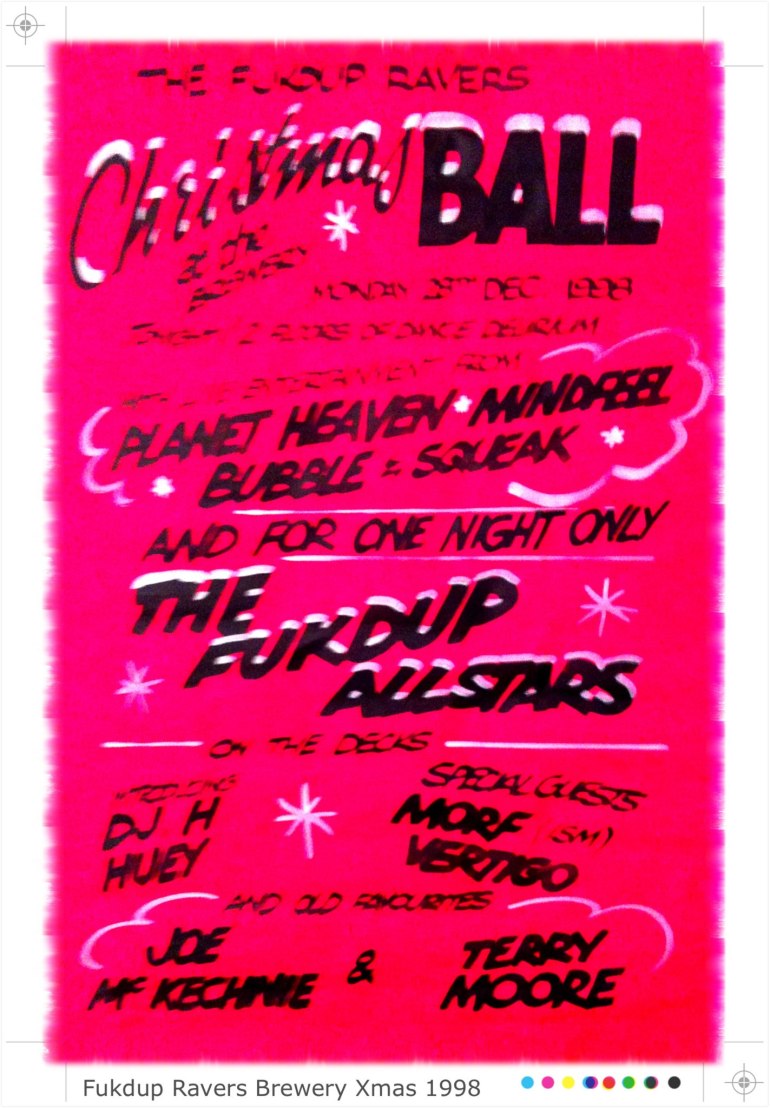 THE FUKDUP RAVERS
Christmas BALL
at the
BREWERY
MONDAY 29TH DEC 1998
TONIGHT / 2 FLOORS OF DANCE DELIRIUM
WITH LIVE ENTERTAINMENT FROM
PLANET HEAVEN * MINDFEEL
BUBBLE & SQUEAK
AND FOR ONE NIGHT ONLY
THE
FUKDUP
ALLSTARS
ON THE DECKS
INTRODUCING
DJ H
HUEY
SPECIAL GUESTS
MORF (SM)
VERTIGO
AND OLD FAVOURITES
JOE
McKECHNIE
&
TERRY
MOORE
Fukdup Ravers Brewery Xmas 1998